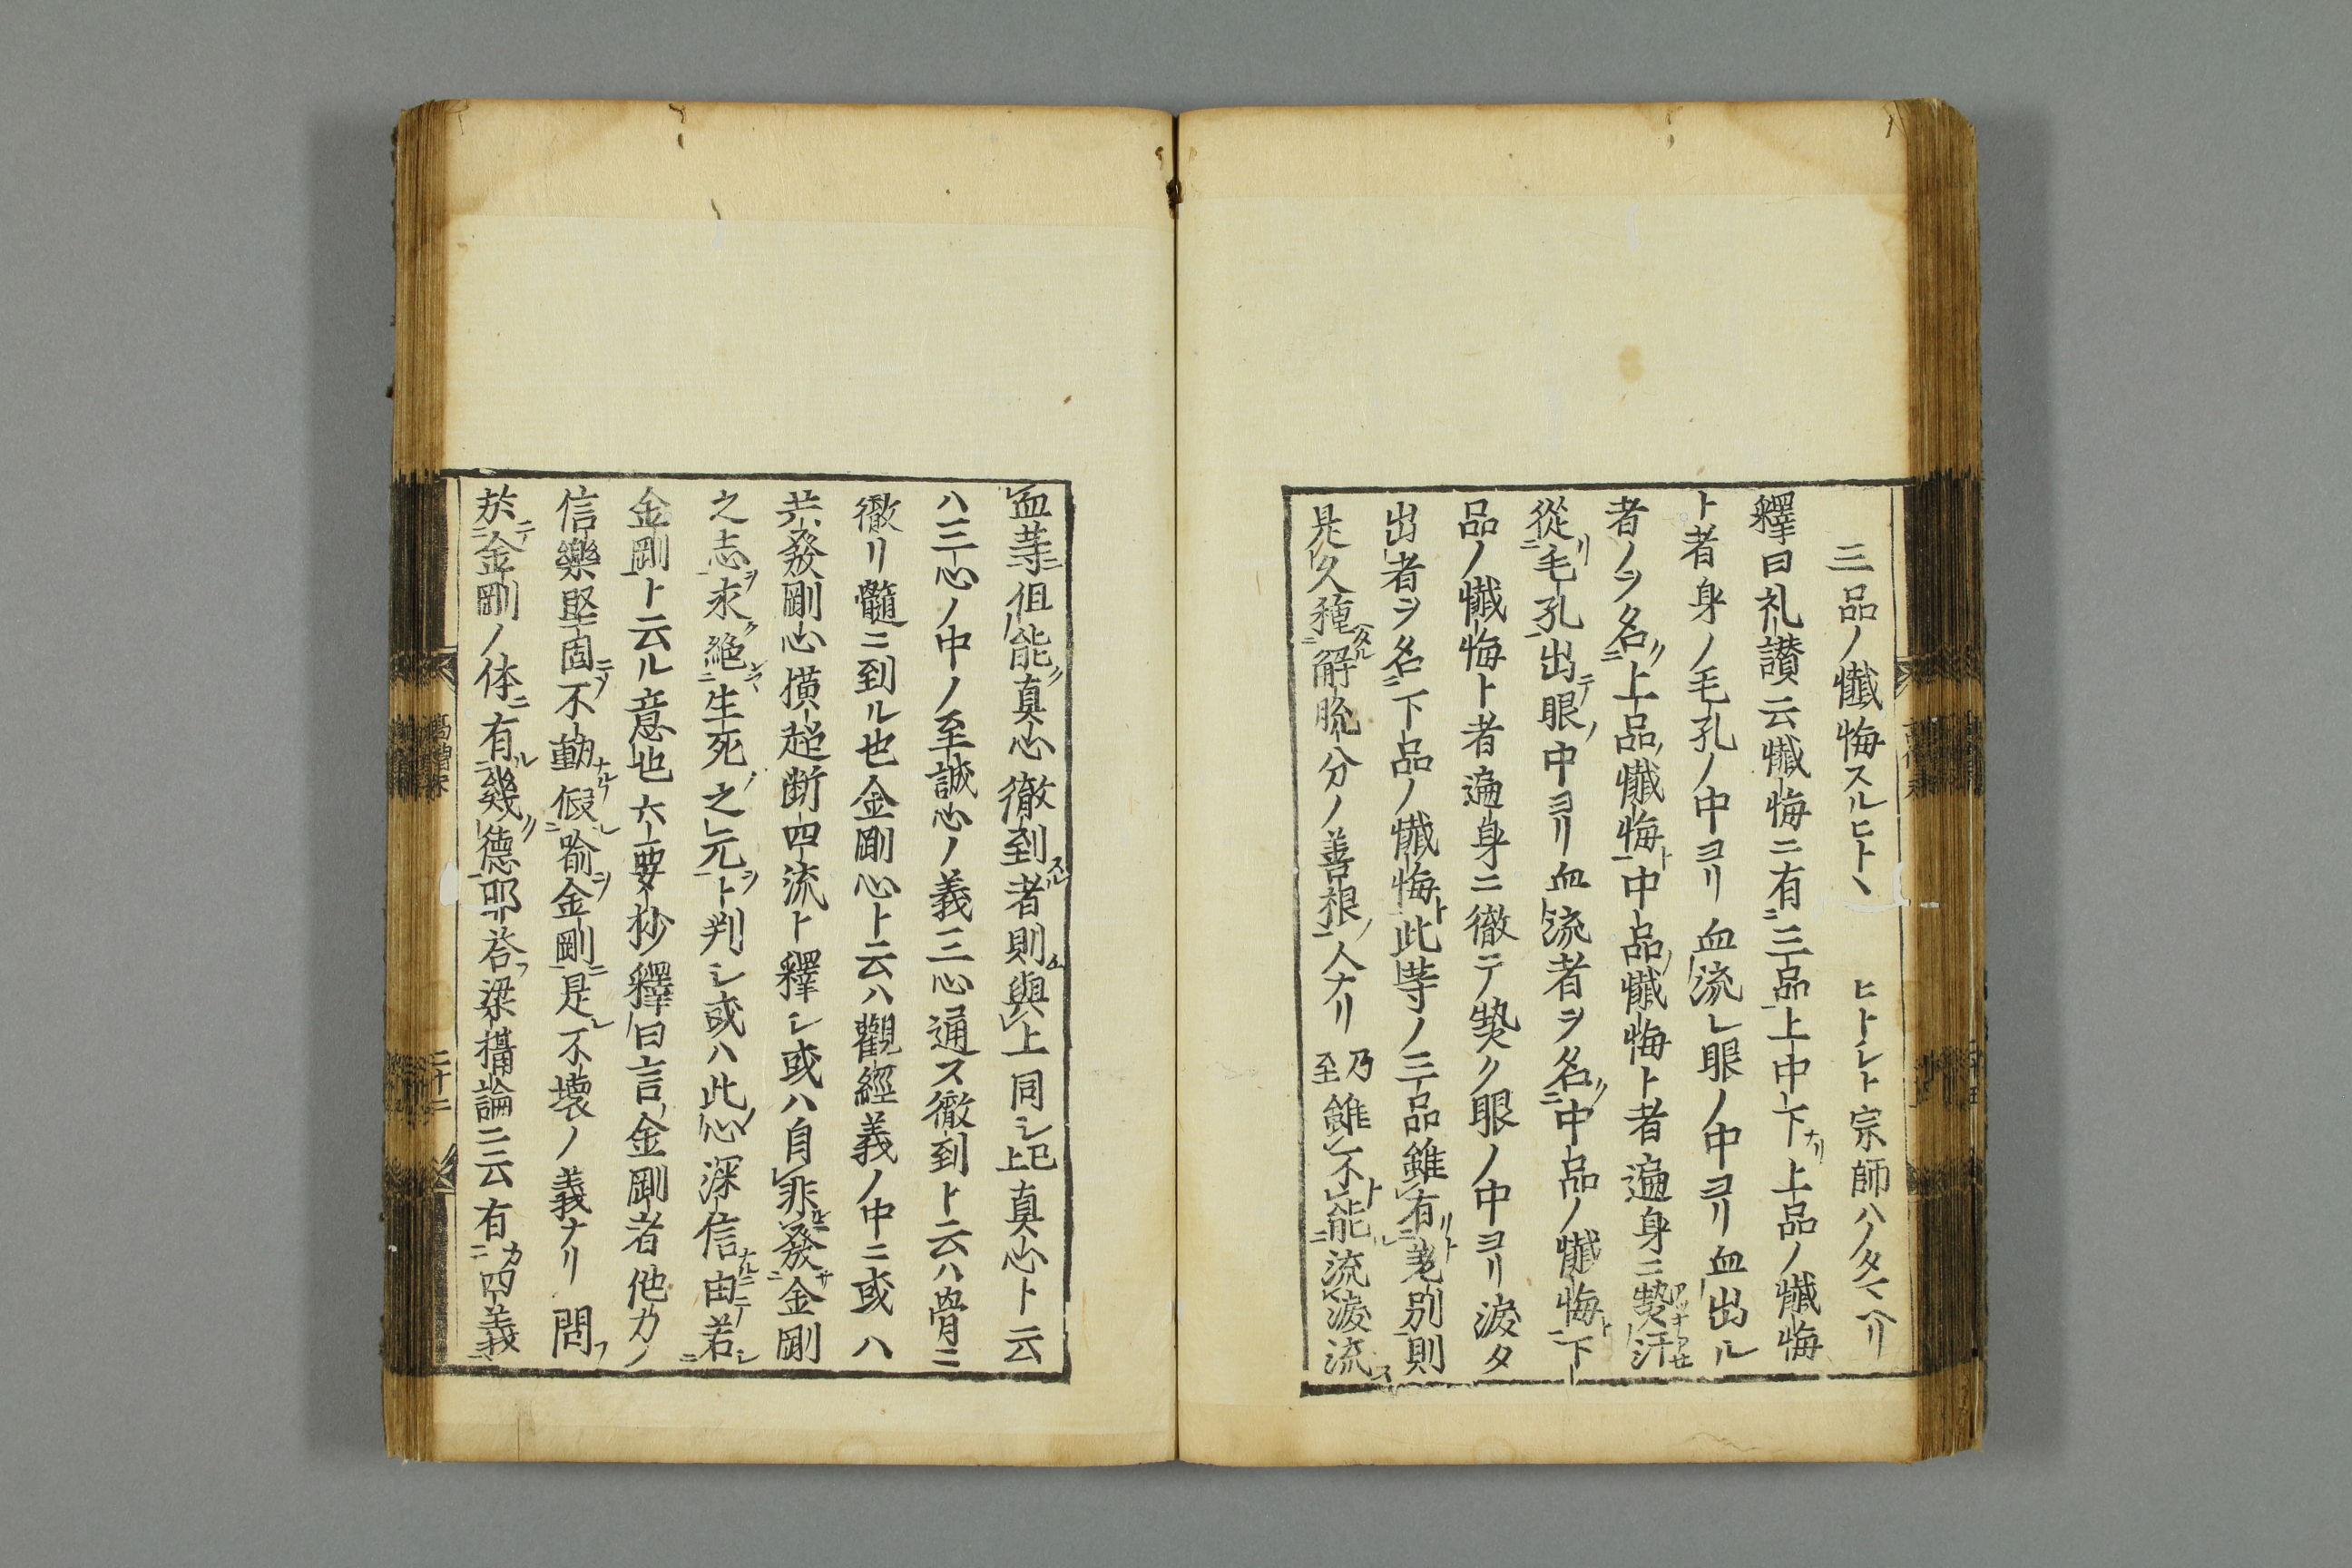 三品ノ懺悔スルヒトヽ　ヒトシト宗師ハノタマヘリ
釋曰礼讃云懺悔ニ有三品上中下ナリ上品ノ懺悔
ト者身ノ毛孔ノ中ヨリ血流レ眼ノ中ヨリ血出ル
者ノヲ名上品懺悔ト中品懺悔ト者遍身ニ熱汗
從毛孔出テ眼ノ中ヨリ血流者ヲ名中品ノ懺悔ト下
品ノ懺悔ト者遍身ニ徹テ熱ク眼ノ中ヨリ淚タ
出者ヲ名下品ノ懺悔ト此等ノ三品雖有差別則
是久種解脱分ノ善根人ナリ乃至雖不能流淚流
血等但能真心徹到スル者則與上同シ已上真心ト云
ハ三心ノ中ノ至誠心ノ義三心通ス徹到ト云ハ骨ニ
徹リ髓ニ到ル也金剛心ト云ハ觀經義ノ中ニ或ハ
共發剛心横超断四流ト釋シ或ハ自非發金剛
之志ヲ永絶生死之元ヲト判シ或ハ此心深信由若
金剛ト云ル意也六要抄釋曰言金剛者他力ノ
信樂堅固不動假喩金剛是不壞ノ義ナリ問フ
於金剛ノ体有幾德耶荅梁攝論ニ云有四義
高僧末
二十二